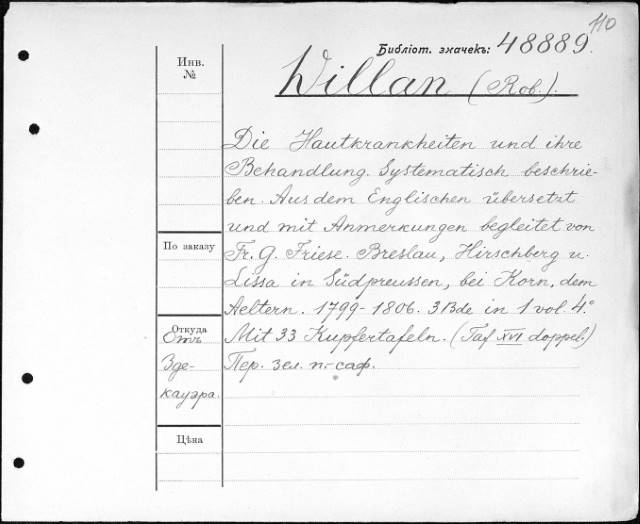 110
Библіот. значекъ: 48889.
Инв.
№
Willan (Rob.).
Die Hautkrankheiten und ihre
Behandlung. Systematisch beschrie-
ben. Aus dem Englischen übersetzt
und mit Anmerkungen begleitet von
По заказу
Fr. G. Friese. Breslau, Hirschberg u.
Lissa in Südpreussen, bei Korn, dem
Aeltern. 1799-1806. 3 Bde in 1 vol. 4°
Откуда
Отъ
Зде-
кауэра.
Mit 33 Kupfertafeln. (Taf. XVI doppel.)
Пер. зел. п.-саф.
Цѣна